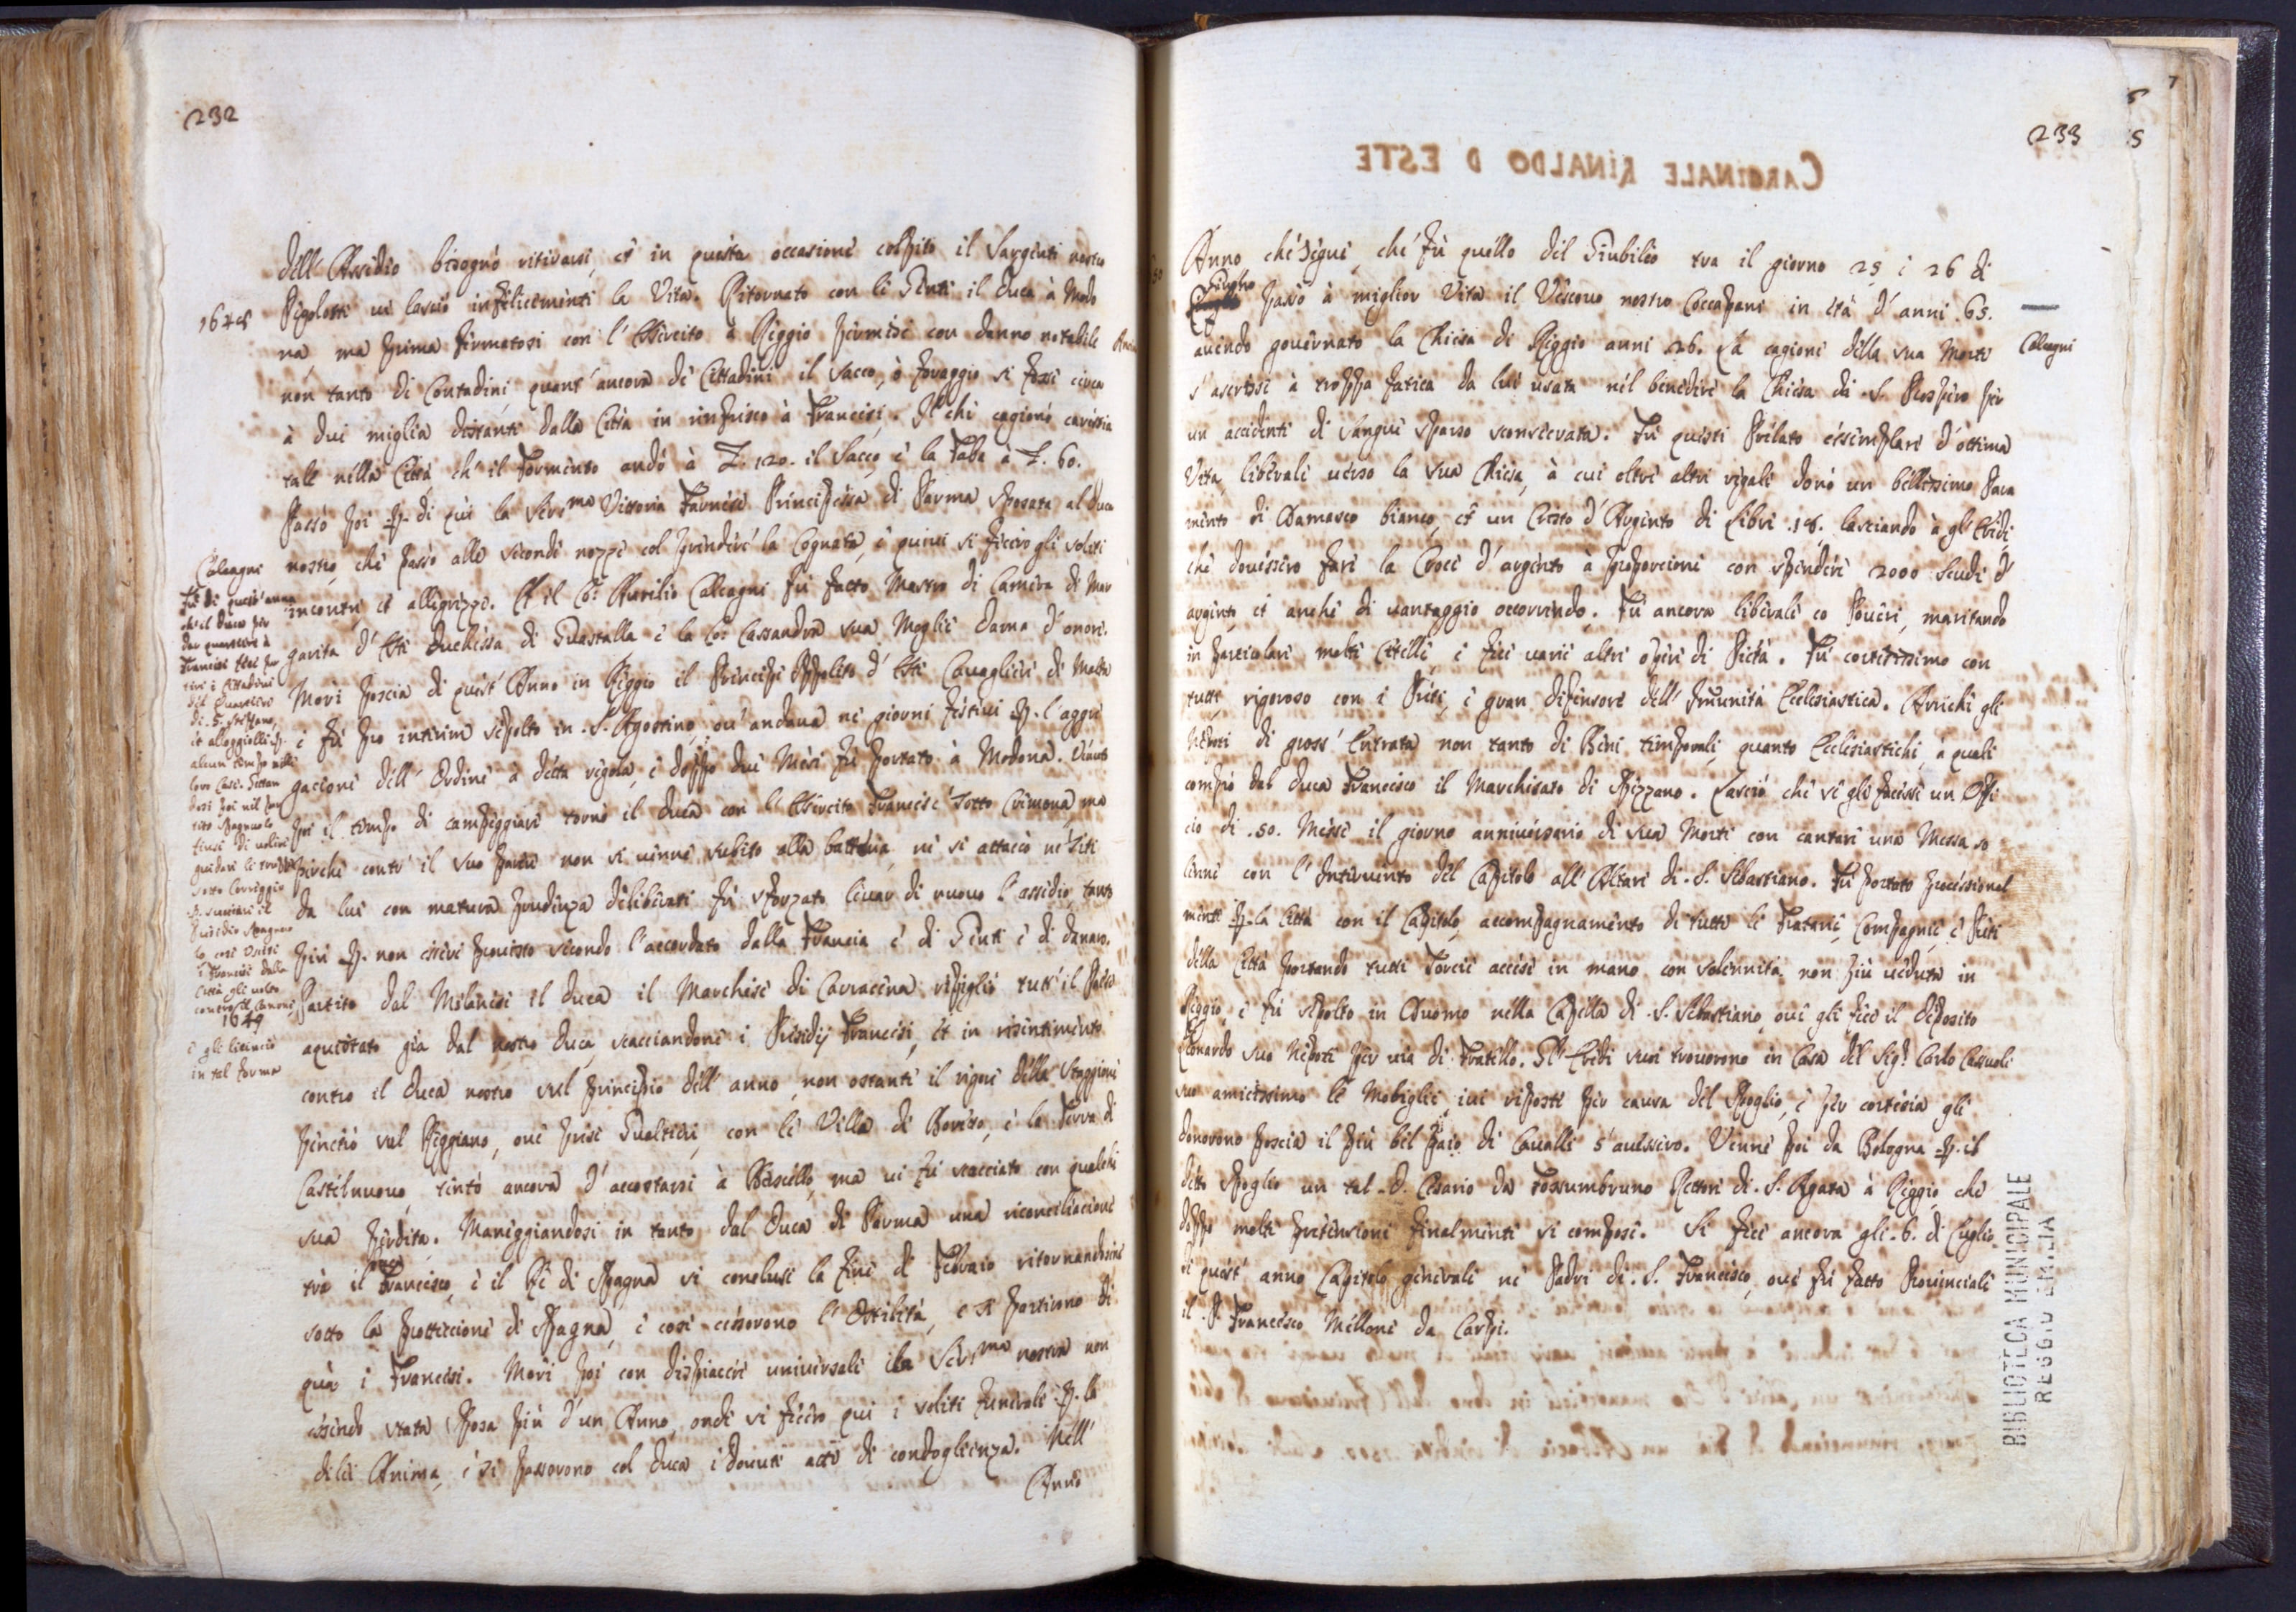 232
dell' Assidio bisognò ritirarsi, et in questa occasione colpito il Sargente nostro
1648
Pigolotti vi lasciò infelicemente la Vita. Ritornato con le Genti il Duca à Mode
na, ma prima fermatosi con l' Essercito à Reggio permise con danno notabile
non tanto di Contadini, quant' ancora de Cittadini il Sacco, ò foraggio si fosse circa
à due miglia distanti dalla Città in rinfresco à Francesi. Il che cagionò carestia
tale nella Città ch' il Formento andò à L. 120. il Sacco, e la Faba à L. 60.
Passò poi p. di qui la Ser.ma Vittoria Farnese Principessa di Parma Sposata al Duca
nostro, che passò alle seconde nozze col prendere la Cognata, e quivi si fecero gli soliti
incontri, et allegrezze. Et il Co: Aurelio Calcagni fu fatto Mastro di Camera di Mar
garita d' Este Duchessa di Guastalla, e la Co: Cassandra sua Moglie Dama d' onore.
Morì poscia di quest' Anno in Reggio il Principe Ippolito d' Este Cavagliere di Malta
e fù pro interim sepolto in S. Agostino ou' andaua ne giorni festiui p. l' aggre
gacione dell' Ordine à detta regola, e doppo due Mesi fù portato à Modona. Venuto
poi il tempo di campeggiare tornò il Duca con l' Essercito Francese sotto Cremona, ma
perche contr' il suo parere non si uenne subito alla batteria, ne si attaccò ne siti
da lui con matura prudenza deliberati fù sforzato leuar di nuouo l' assidio, tanto
più p. non essere prouisto secondo l' accordato dalla Francia e di Genti e di danaro.
Partito dal Milanese il Duca il Marchese di Carracena ripigliò tutt' il Paese
aquistato già dal nostro Duca, scacciandone i Presidij Francesi, et in risentimento
contro il Duca nostro sul principio dell' anno, non ostante il rigore della Staggione
penetrò sul Reggiano, oue prese Gualtieri, con le Ville di Boreto, e la Terra di
Castelnuouo, tentò ancora d' accostarsi à Bersello, ma ui fù scacciato con qualche
sua perdita. Maneggiandosi in tanto dal Duca di Parma una riconciliacione
trà il Duca Francesco, e il Re di Spagna si concluse la fine di Febraio ritornandosene
sotto la protteccione di Spagna, e così cessorono l' Ostilità, e si partirono di
quà i Francesi. Morì poi con dispiacere uniuersale la Ser.ma nostra non
essendo stata Sposa più d' un Anno, onde si fecero qui i soliti funerali p. la
di lei Anima, e si passorono col Duca i douuti atti di condoglienza. Nell'
Anno
Calcagni
Fù di quest' anno
ch' il Duca per
dar quartiere à
Francesi fece par
tire i Cittadini
del Quartiere
di S. Steffano,
et alloggiolli p.
alcun tempo nelle
loro Case.
1649
e gli licenciò
in tal forma
233
CARDINALE RINALDO D ESTE
Anno che segue, che fù quello del Giubileo tra il giorno 25 e 26 di
Giugno passò à miglior Vita il Vescouo nostro Coccapani in età d' anni 65.
Calcagni
auendo gouernato la Chiesa di Reggio anni 26. La cagione della sua Morte
s' ascrisse à troppa fatica da lui usata nel benedire la Chiesa di S. Prospero per
un accidente di Sangue Sparso sconsecrata. Fù questi Prelato essemplare d' ottima
Vita, liberale uerso la sua Chiesa, à cui oltre altri regali donò un bellissimo Para
mento di Damasco bianco, et un Cristo d' Argento di Libre 18. lasciando à gl' Eredi,
che douessero fare la Croce d' argento à proporcione con spendere 2000 Scudi d'
argento, et anche di uantaggio occorrendo. Fù ancora liberale co Poueri, maritando
in particolare molte Citelle, e fece varie altre opere di Pietà. Fù cortesissimo con
tutti, rigoroso con i Preti, e gran difensore dell' Immunità Ecclesiastica. Arricchì gli
Nepoti di gross' Entrata non tanto di Beni temporali, quanto Ecclesiastichi, à quali
comprò dal Duca Francesco il Marchesato di Spezzano. Lasciò che se gli facesse un Offi
cio di 50. Messe il giorno anniuersario di sua Morte con cantare una Messa so
lenne con l' Interuento del Capitolo all' Altare di S. Sebastiano. Fù portato processional
mente p. la Città con il Capitolo, accompagnamento di tutte le Fratarie, Compagnie, e Preti
della Città portando tutti Torcie accese in mano con solennità non più ueduta in
Reggio, e fù sepolto in Duomo nella Capella di S. Sebastiano, oue gli fece il deposito
Leonardo suo Nepote per uia di Fratello. Gl' Eredi suoi trouorono in Casa del Sig.r Carlo Cassoli
suo amicissimo le Mobiglie iui riposte per causa del Spoglio, e per cortesia gli
donorono poscia il più bel Paio di Caualli s' auessero. Venne poi da Bologna p. il
detto Spoglio un tal D. Cesario da Fossumbruno Rettore di S. Agata à Reggio, che
doppo molte pretensioni finalmente si compose. Si fece ancora gli 6. di Luglio
di quest' anno Capitolo generale ne Padri di S. Francesco, oue fù fatto Prouinciale
il P. Francesco Melloni da Carpi.
BIBLIOTECA MUNICIPALE
REGGIO EMILIA